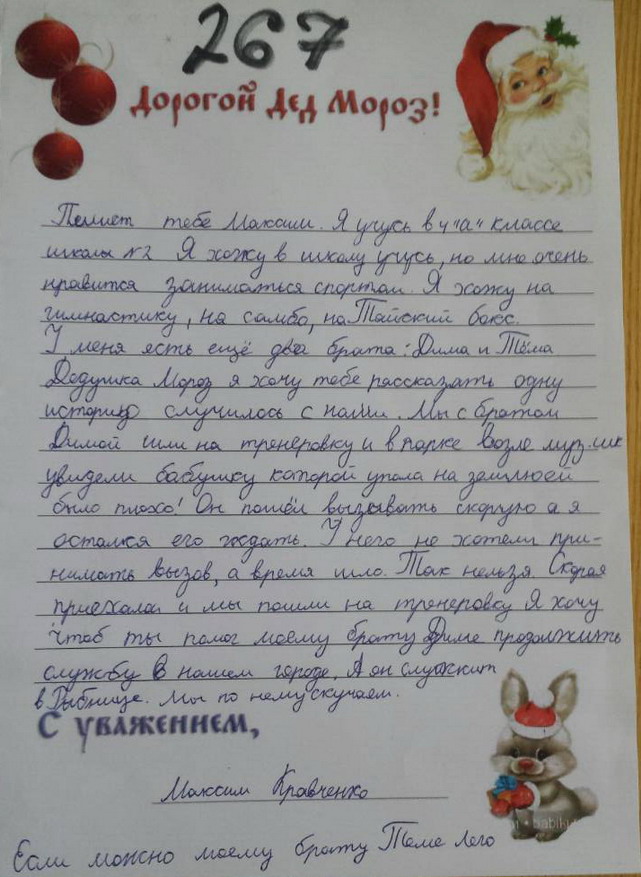 267
Дорогой Дед Мороз!
Пешиет тебе Максим. Я учусь в 4 "а" классе
школы №2 Я хожу в школу учусь, но мне очень
нравится заниматься спортом. Я хожу на
гимнастику, на самбо, на Тайский бокс.
У меня есть ещё два брата: Дима и Тёма
Дедушка Мороз я хочу тебе рассказать одну
историю случилось с нами. Мы с братом
Димой шли на тренеровку и в парке возле муз. шк
увидели бабушку которой упала на землю ей
было плохо! Он пошёл вызывать скорую а я
остался его ждать. У него не хотели при-
нимать вызов, а время шло. Так нельзя. Скорая
приехала и мы пошли на тренеровку Я хочу
чтоб ты помог моему брату Диме продолжить
службу в нашем городе. А он служит
в Рыбнице. Мы по нему скучаем.
С уважением,
Максим Кравченко
Если можно моему брату Теме Лего